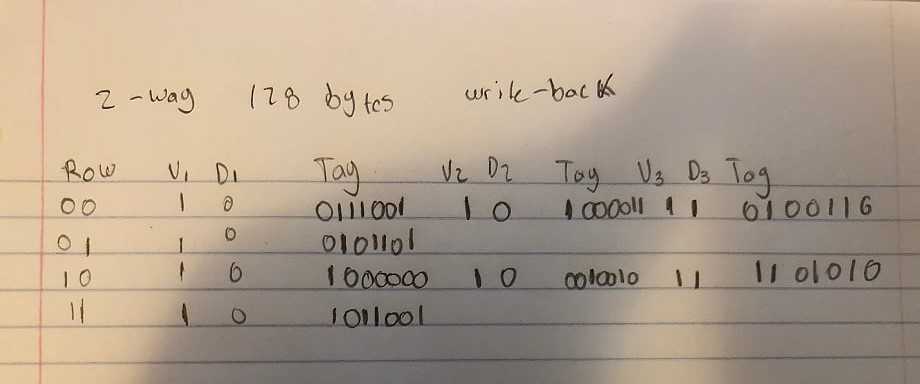 2-way 128 bytes write-back
Row V1 D1 Tag V2 D2 Tag V3 D3 Tag
00 1 0 0111001 1 0 1000011 1 1 0100110
01 1 0 0101101
10 1 0 1000000 1 0 0010010 1 1 1101010
11 1 0 1011001